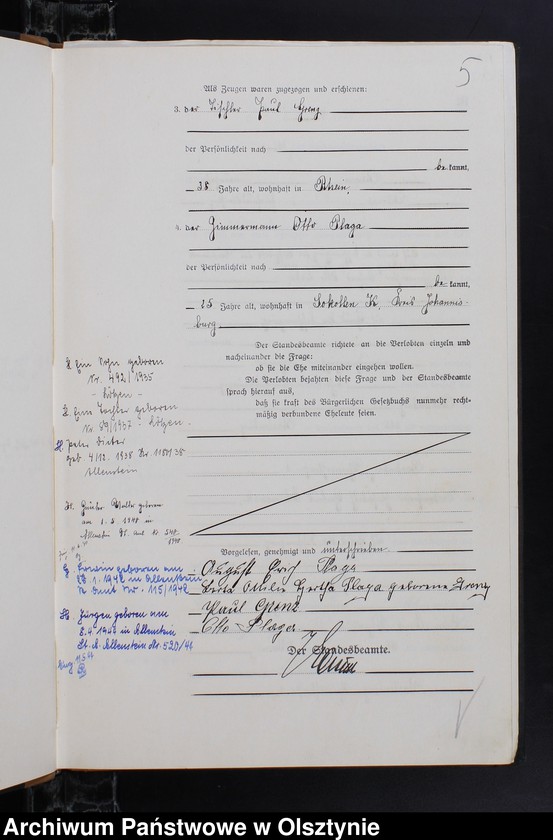 5
Als Zeugen waren zugezogen und erschienen:
3. der Tischler Paul
der Persönlichkeit nach
be kannt,
38 Jahre alt, wohnhaft in Rhein,
4. der Zimmermann Otto Plaga
der Persönlichkeit nach
be kannt,
25 Jahre alt, wohnhaft in Sokollen K. Kreis Johannis-
burg
Der Standesbeamte richtete an die Verlobten einzeln und
nacheinander die Frage:
ob sie die Ehe miteinander eingehen wollen.
Die Verlobten bejahten diese Frage und der Standesbeamte
sprach hierauf aus,
daß sie kraft des Bürgerlichen Gesetzbuchs nunmehr recht-
mäßig verbundene Eheleute seien.
Vorgelesen, genehmigt und unterschrieben
August Plaga
Berta Hertha Plaga geborene
Paul
Otto Plaga
Der Standesbeamte.
Ein Sohn geboren
Nr. 492/1935
- Lötzen -
Eine Tochter geboren
Nr. 59/1937 - Lötzen.
Peter Dieter
geb. 4/12. 1938 Nr. 1150/38
Allenstein
geboren
am
Allenstein
Erwin geboren am
1. 1942 in Allenstein
Nr. 115/1942
Jürgen geboren am
8.4. in Allenstein
St. A. Allenstein Nr. 520/
Archiwum Państwowe w Olsztynie